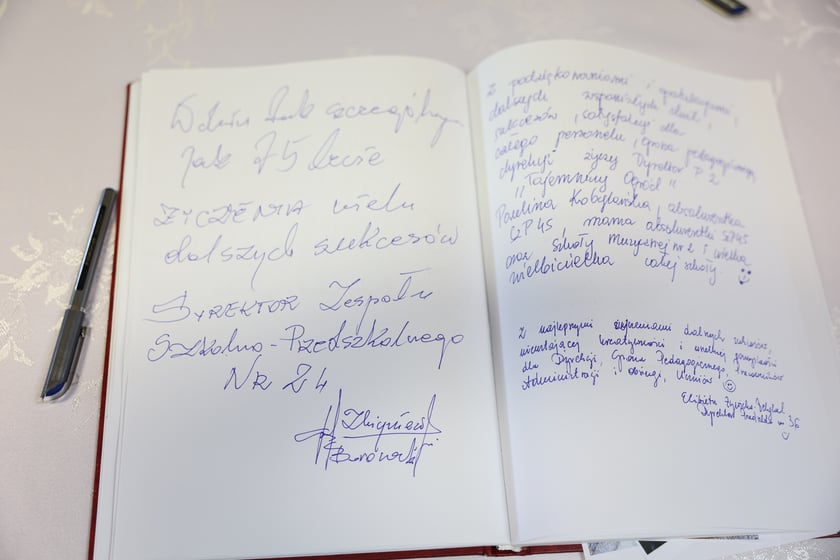 W dniu tak szczególnym
jak 75 lecie
ŻYCZENIA wielu
dalszych sukcesów
DYREKTOR Zespołu
Szkolno-Przedszkolnego
Nr 24
Zbigniew
Z podziękowaniami i gratulacjami,
dalszych wspaniałych chwil,
sukcesów, satysfakcji dla
całego personelu, grona pedagogicznego,
dyrekcji życzy Dyrektor P 2
"Tajemniczy Ogród"
Paulina Kobylańska, absolwentka
SP45, mama absolwentki SP45
oraz szkoły muzycznej nr 2 i wielka
wielbicielka całej szkoły.
Z najlepszymi życzeniami dalszych sukcesów,
nieustającej kreatywności i wszelkiej pomyślności
dla Dyrekcji, Grona Pedagogicznego, Pracowników
Administracji i obsługi, Uczniów
Elżbieta
Dyrektor Przedszkola nr 36